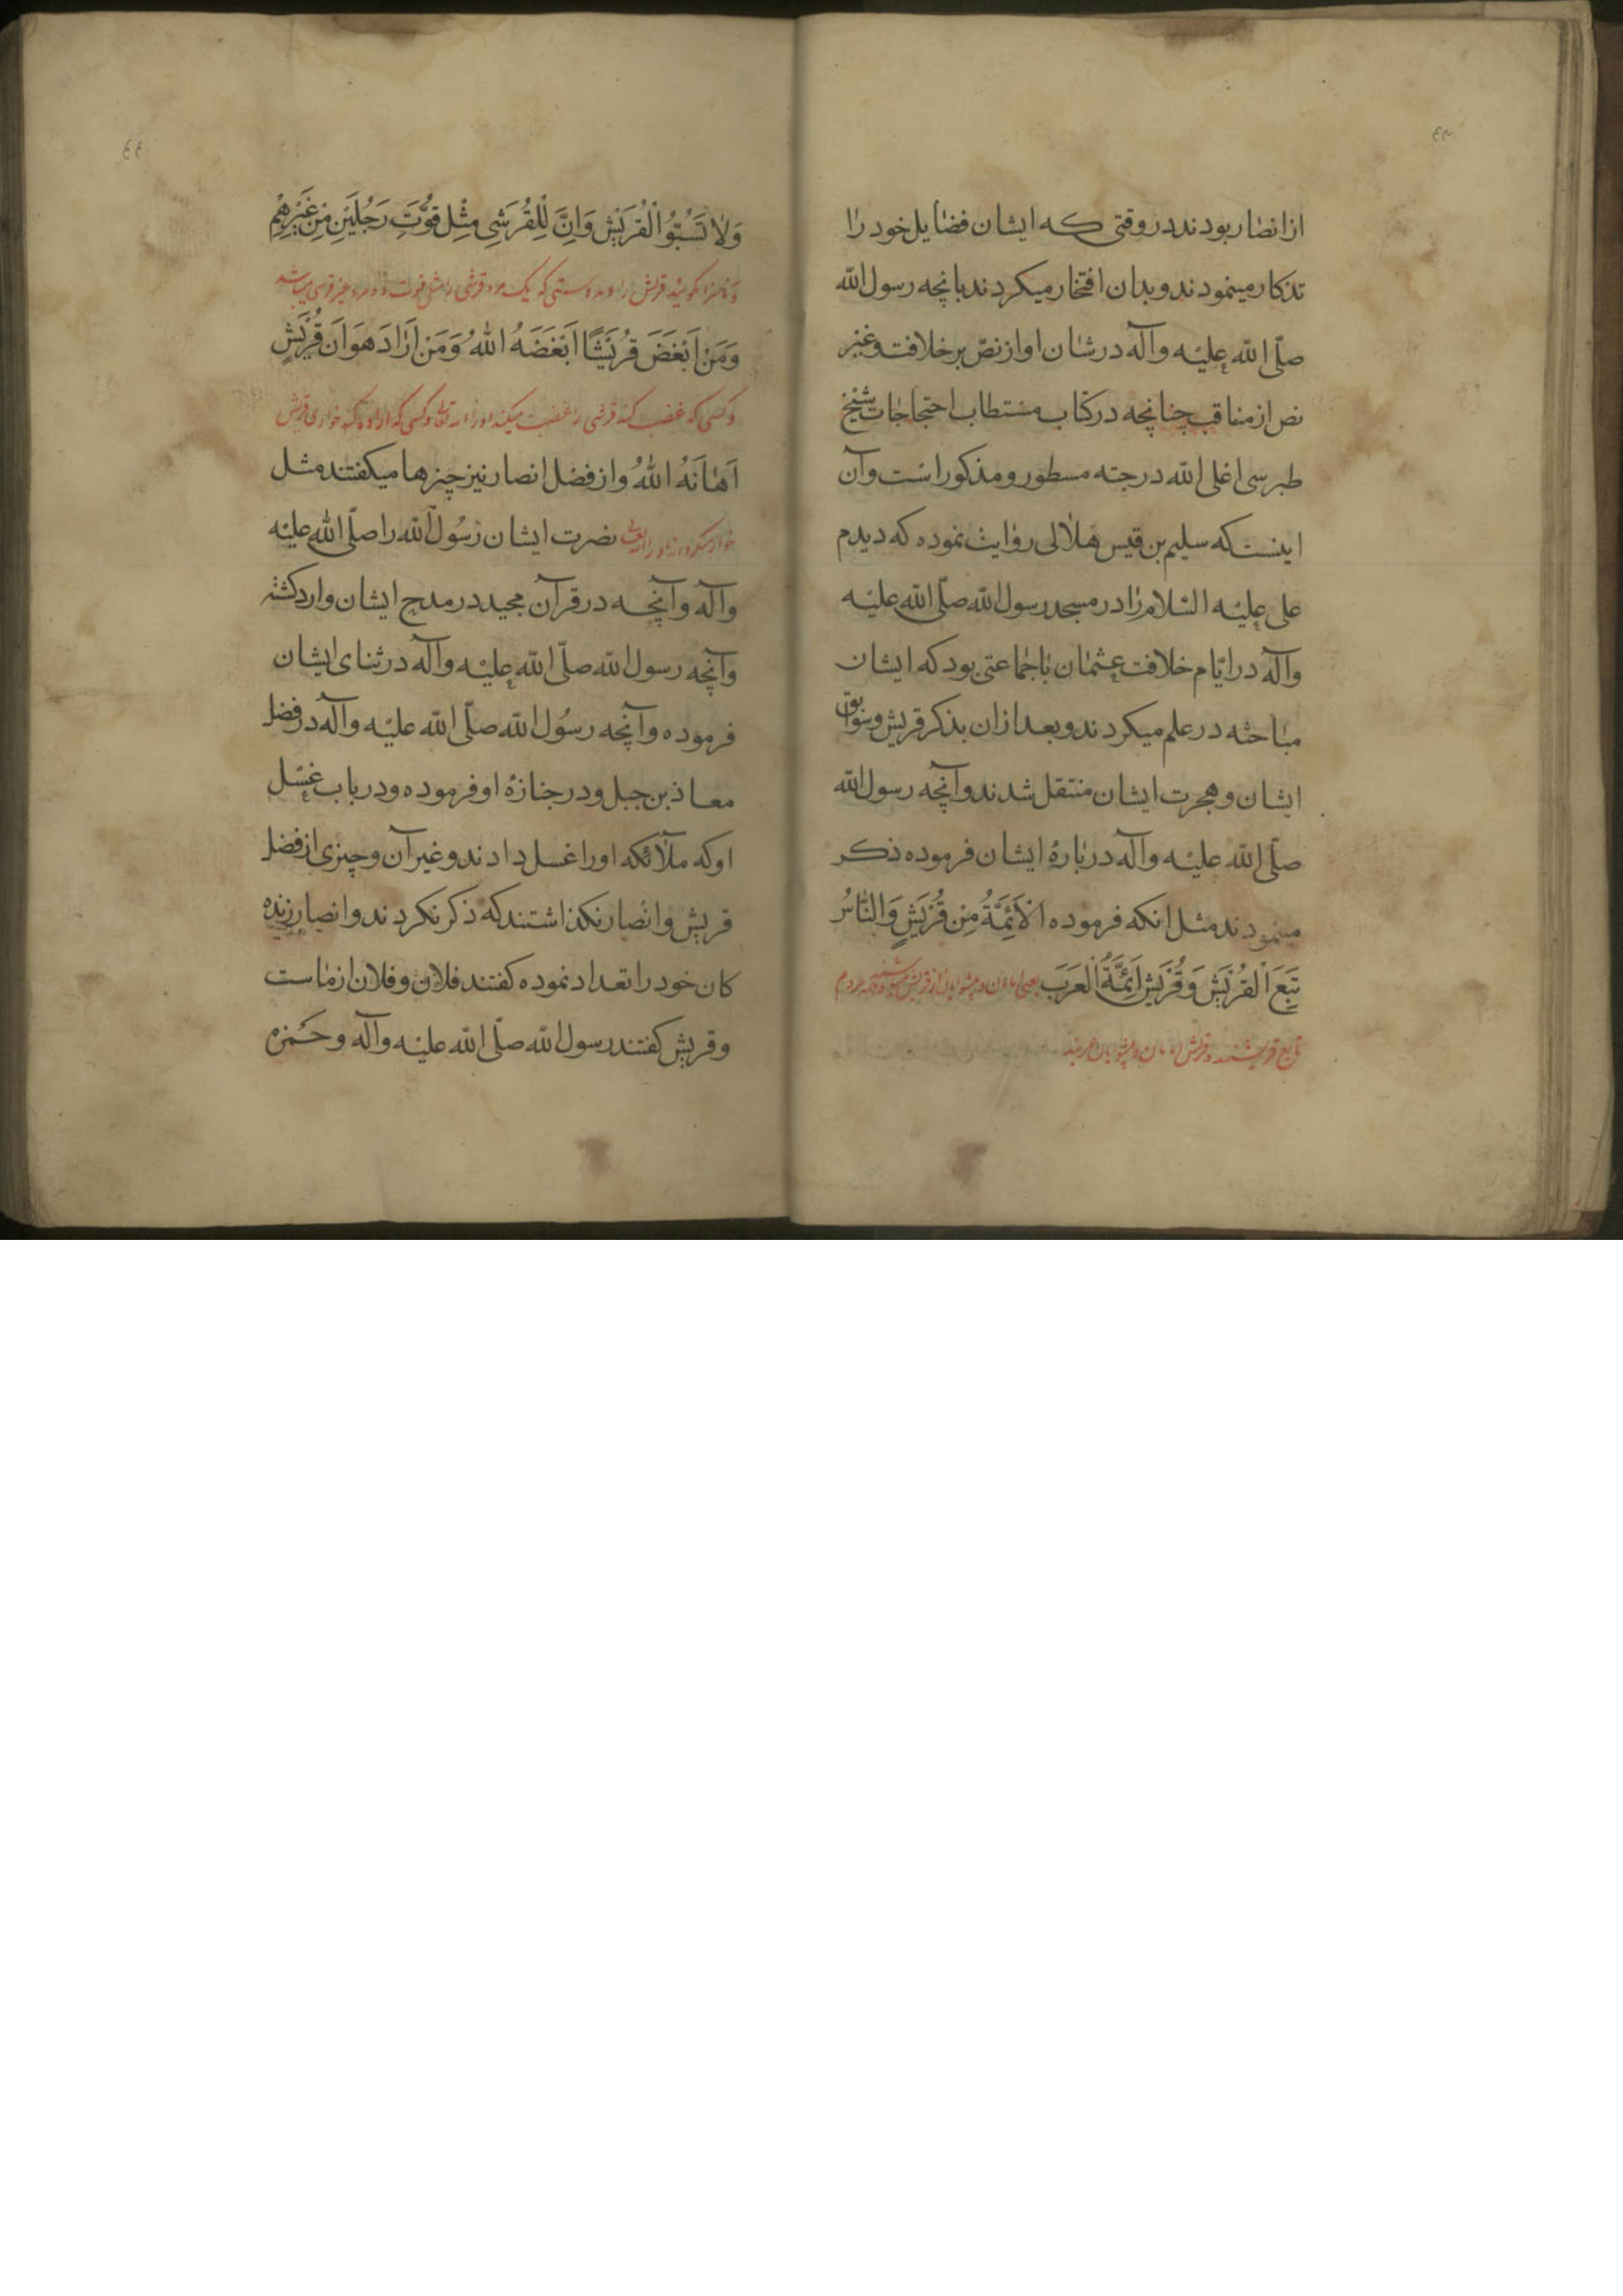 ۴۳
از انصار بودند در وقتی که ایشان فضایل خود را
تذکار مینمودند و بدان افتخار میکردند بانچه رسول الله
صلّی الله علیه وآله در شان او از نصّ بر خلافت و غیر
نص از مناقب چنانچه در کتاب مستطاب احتجاجات شیخ
طبرسی اعلی الله درجته مسطور و مذکور است و آن
اینست که سلیم بن قیس هلالی روایت نموده که دیدم
علی علیه السّلام را در مسجد رسول الله صلّی الله علیه
وآله در ایّام خلافت عثمان باجماعتی بود که ایشان
مباحثه در علم میکردند و بعد ازان بذکر قریش و سوابق
ایشان و هجرت ایشان منتقل شدند و آنچه رسول الله
صلّی الله علیه وآله در بارهٔ ایشان فرموده ذکر
مینمودند مثل انکه فرموده الْاَئِمَّةُ مِن قُرَیَشٍ وَالنَّاسُ
تَبِعَ الْقُرَیَش وَقُرَیَش اَئِمَّةُ الْعَرَبَ یعنی امامان و پیشوایان از قریش و همه مردم
تابع قریشند و قریش امامان و پیشوایان عربند
۴۴
وَلا تَسُبُّوُا الْقُرَیَش وَاِنَّ لِلْقُرَشِی مِثْل قُوَّتَ رَجُلَیْنِ مِن غَیْرِهِم
و ناسزا مگویید قریش را و بدرستی که یک مرد قرشی را مثل قوت دو مرد غیر قرشی میباشد
وَمَنْ اَبْغَضَ قُرَیَشًا اَبْغَضَهُ اللهُ وَمَنْ اَرَادَ هَوَانَ قُرَیَشٍ
و کسی که غضب کند قرشی را غضب میکند او را الله تعالی و کسی که اراده کند خواری قریش
اَهَانَهُ اللهُ و از فضل انصار نیز چیزها میکفتند مثل
خوار میکرداند او را الله تعالی نصرت ایشان رسُول الله را صلّی الله علیه
وآله و آنچه در قرآن مجید در مدح ایشان وارد کشته
و آنچه رسول الله صلّی الله علیه وآله در ثنای ایشان
فرموده و آنچه رسُول الله صلّی الله علیه وآله در فضل
معاذ بن جبل و در جنازهٔ او فرموده و در باب غسل
او که ملائکه او را غسل دادند و غیر آن و چیزی از فضل
قریش و انصار نکذاشتند که ذکر نکردند و انصار زنده
کان خود را تعداد نموده کفتند فلان و فلان از ماست
و قریش کفتند رسول الله صلّی الله علیه وآله و حمزه